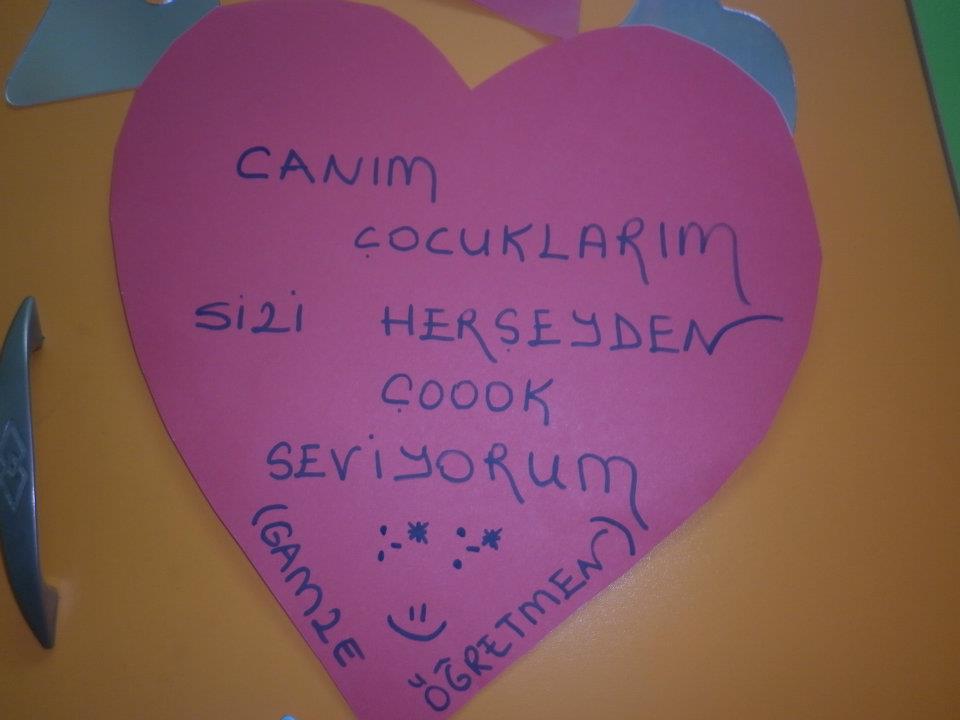 CANIM
ÇOCUKLARIM
SİZİ HERŞEYDEN
ÇOOOK
SEVİYORUM
:-* :-*
=)
(GAMZE
ÖĞRETMEN)